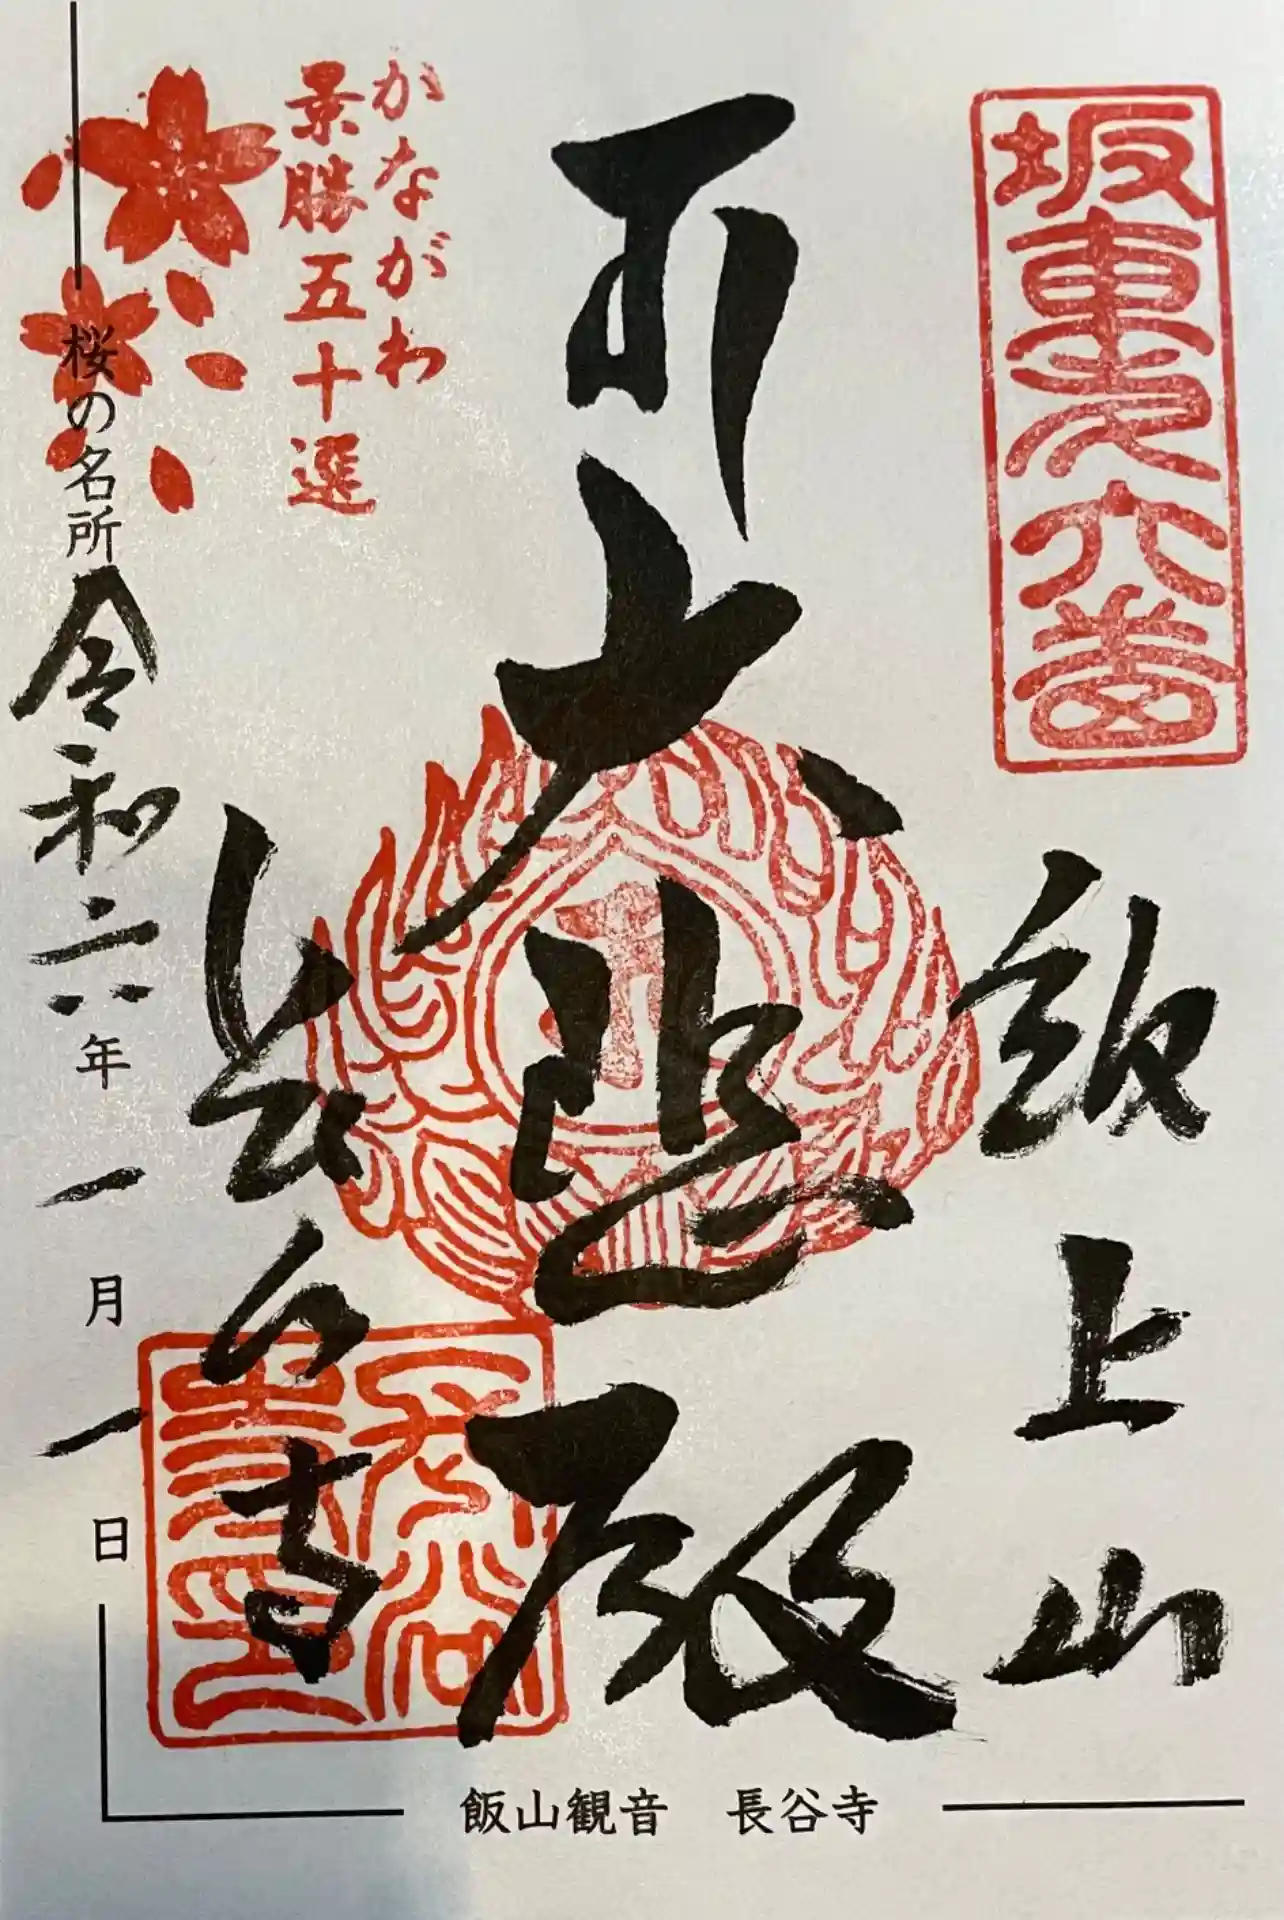 坂東第六番
飯上山
大悲殿
かながわ
景勝五十選
長谷寺
長谷
寺印
桜の名所
令和六年一月一日
飯山観音 長谷寺